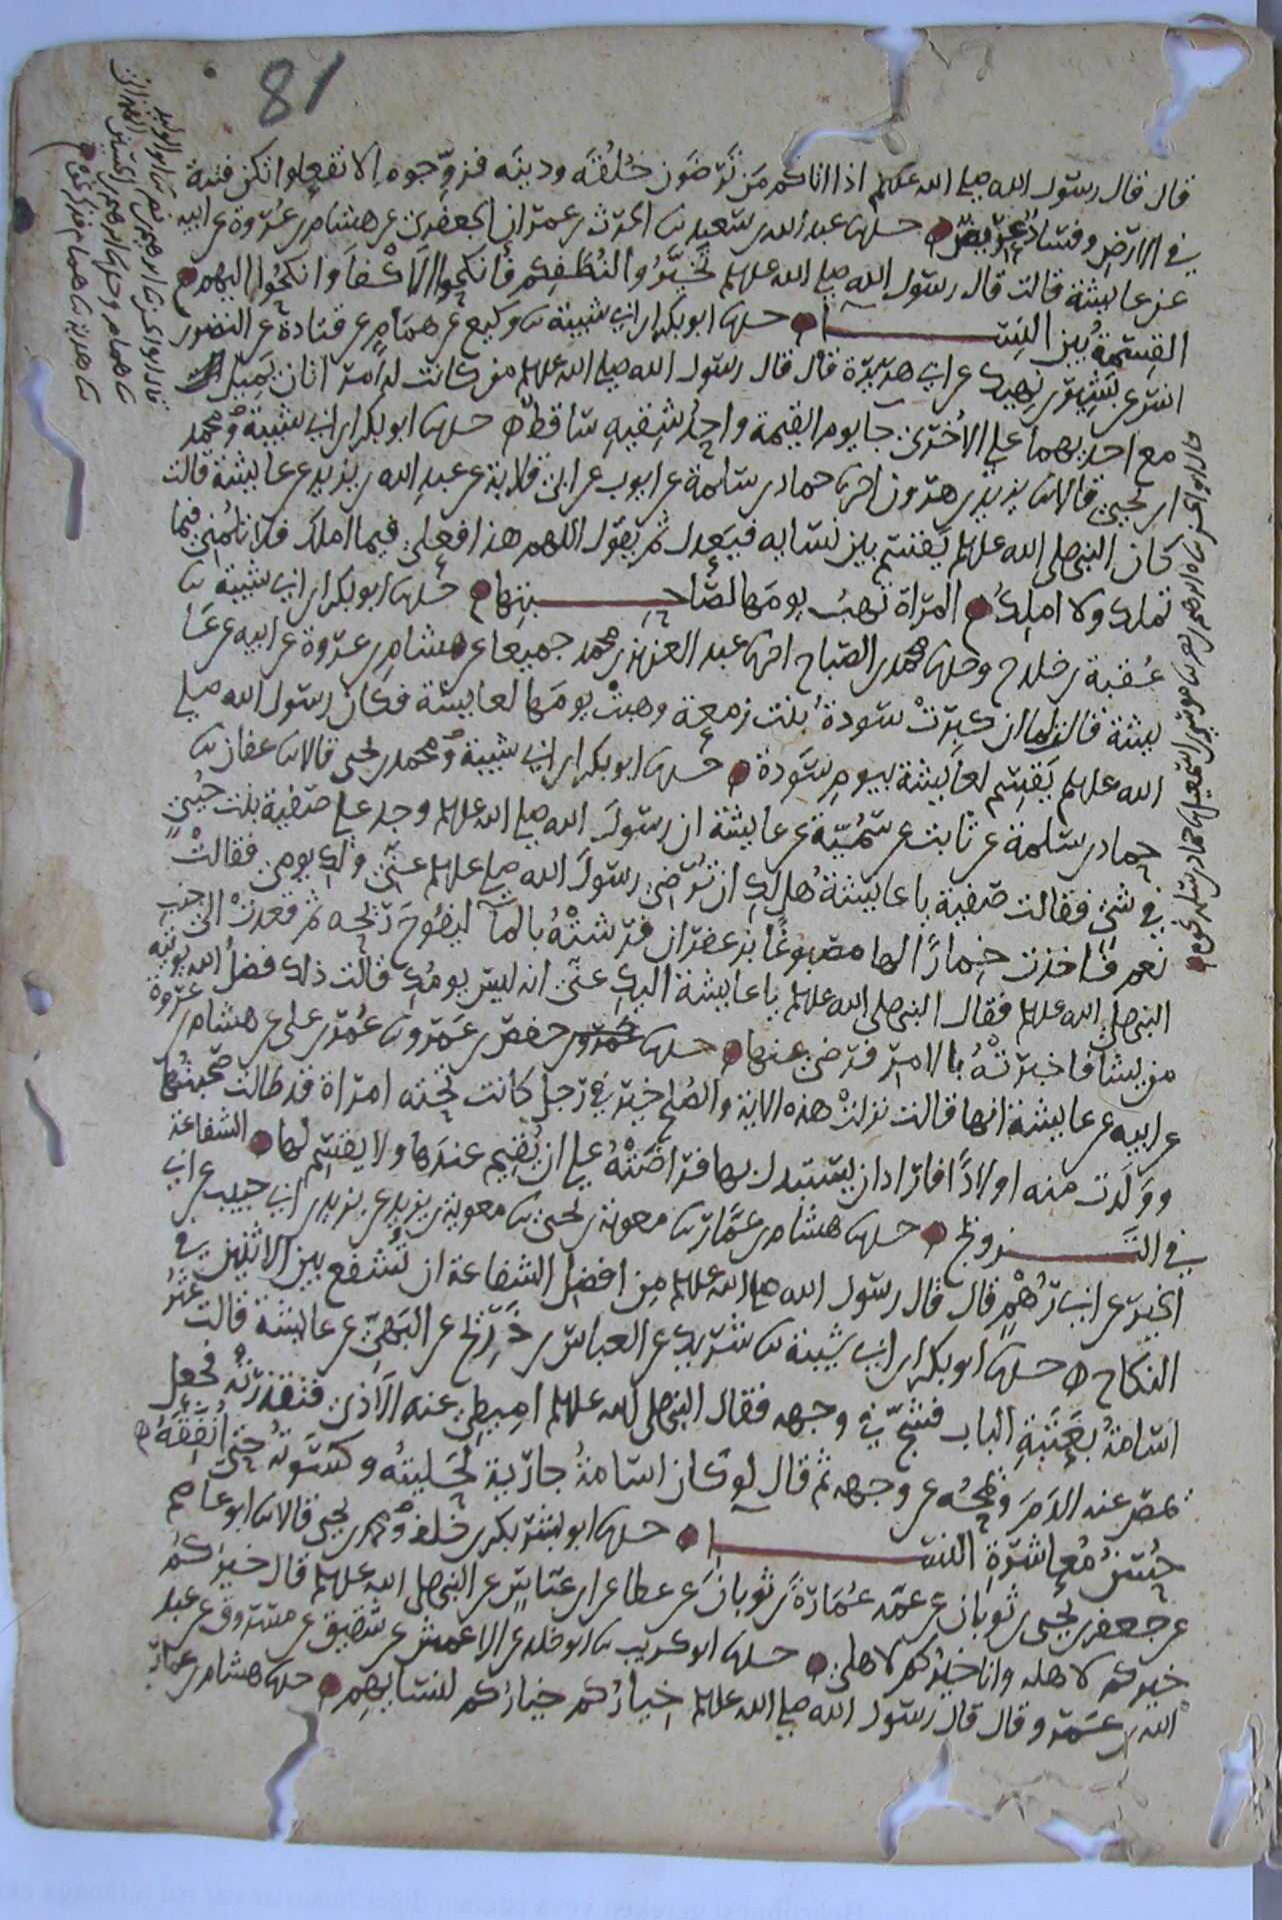 81
قال قال رسول الله صلى الله عليه وسلم اذا اتاكم من ترضون خلقه ودينه فزوجوه الا تفعلوا تكن فتنة
في الارض وفساد عريض حدثنا عبد الله بن سعيد ثنا الحرث بن عمران الجعفري عن هشام بن عروة عن ابيه
عن عايشة قالت قال رسول الله صلى الله عليه وسلم تخيروا لنطفكم فانكحوا الاكفا وانكحوا اليهم
القسمة بين النسا حدثنا ابو بكر ابن ابي شيبة ثنا وكيع عن همام عن قتادة عن النضر بن
انس عن بشير بن نهيك عن ابي هريرة قال قال رسول الله صلى الله عليه وسلم من كانت له امراتان يميل
مع احديهما على الاخرى جا يوم القيمة واحد شقيه ساقط حدثنا ابو بكر ابن ابي شيبة ومحمد
ابن يحيى قالا ثنا يزيد بن هرون اخبرنا حماد بن سلمة عن ايوب عن ابي قلابة عن عبد الله بن يزيد عن عايشة قالت
كان النبي صلى الله عليه وسلم يقسم بين نسايه فيعدل ثم يقول اللهم هذا فعلي فيما املك فلا تلمني فيما
تملك ولا املك المراة تهب يومها لصاحبتها حدثنا ابو بكر ابن ابي شيبة ثنا
عقبة بن خلد ح وحدثنا محمد بن الصباح اخبرنا عبد العزيز بن محمد جميعا عن هشام بن عروة عن ابيه عن عا
يشة قالت لما ان كبرت سودة بنت زمعة وهبت يومها لعايشة فكان رسول الله صلى
الله عليه وسلم يقسم لعايشة بيوم سودة حدثنا ابو بكر ابن ابي شيبة ومحمد بن يحيى قالا ثنا عفان ثنا
حماد بن سلمة عن ثابت عن سمية عن عايشة ان رسول الله صلى الله عليه وسلم وجد على صفية بنت حيي
في شئ فقالت صفية يا عايشة هل لك ان ترضي رسول الله صلى عليه وسلم عني ولك يومي فقالت
نعم فاخذت خمارا لها مصبوغا بزعفران فرشته بالما ليفوح ريحه ثم قعدت الى جنب
النبي صلى الله عليه وسلم فقال النبي صلى الله عليه وسلم يا عايشة اليك عني انه ليس يومك قالت ذلك فضل الله يوتيه
من يشا فاخبرته بالامر فرضي عنها حدثنا حفص بن عمرو ثنا عمر بن علي عن هشام بن عروة
عن ابيه عن عايشة انها قالت نزلت هذه الاية والصلح خير في رجل كانت تحته امراة قد طالت صحبتها
وولدت منه اولادا فاراد ان يستبدل بها فراضته على ان يقيم عندها ولا يقسم لها الشفاعة
في التزويج حدثنا هشام بن عمار ثنا معوية بن يحيى ثنا معوية بن يزيد عن يزيد بن ابي حبيب عن ابي
الخير عن ابي رهم قال قال رسول الله صلى الله عليه وسلم من افضل الشفاعة ان تشفع بين الاثنين في
النكاح حدثنا ابو بكر ابن ابي شيبة ثنا شريك عن العباس بن ذريح عن البهي عن عايشة قالت عثر
اسامة بعتبة الباب فشج في وجهه فقال النبي صلى الله عليه وسلم اميطي عنه الاذى فتقذرته فجعل
يمص عنه الدم ويمجه عن وجهه ثم قال لو كان اسامة جارية لحليته وكسوته حتى انفقه
حسن معاشرة النسا حدثنا ابو بشر بكر بن خلف ومحمد بن يحيى قالا ثنا ابو عاصم
عن جعفر بن يحيى بن ثوبان عن عمه عمارة بن ثوبان عن عطا عن ابن عباس عن النبي صلى الله عليه وسلم قال خيركم
خيركم لاهله وانا خيركم لاهلي حدثنا ابو كريب ثنا ابو خلد عن الاعمش عن شقيق عن مسروق عن عبد
الله بن عمرو قال قال رسول الله صلى الله عليه وسلم خياركم خياركم لنسايهم حدثنا هشام بن عمار